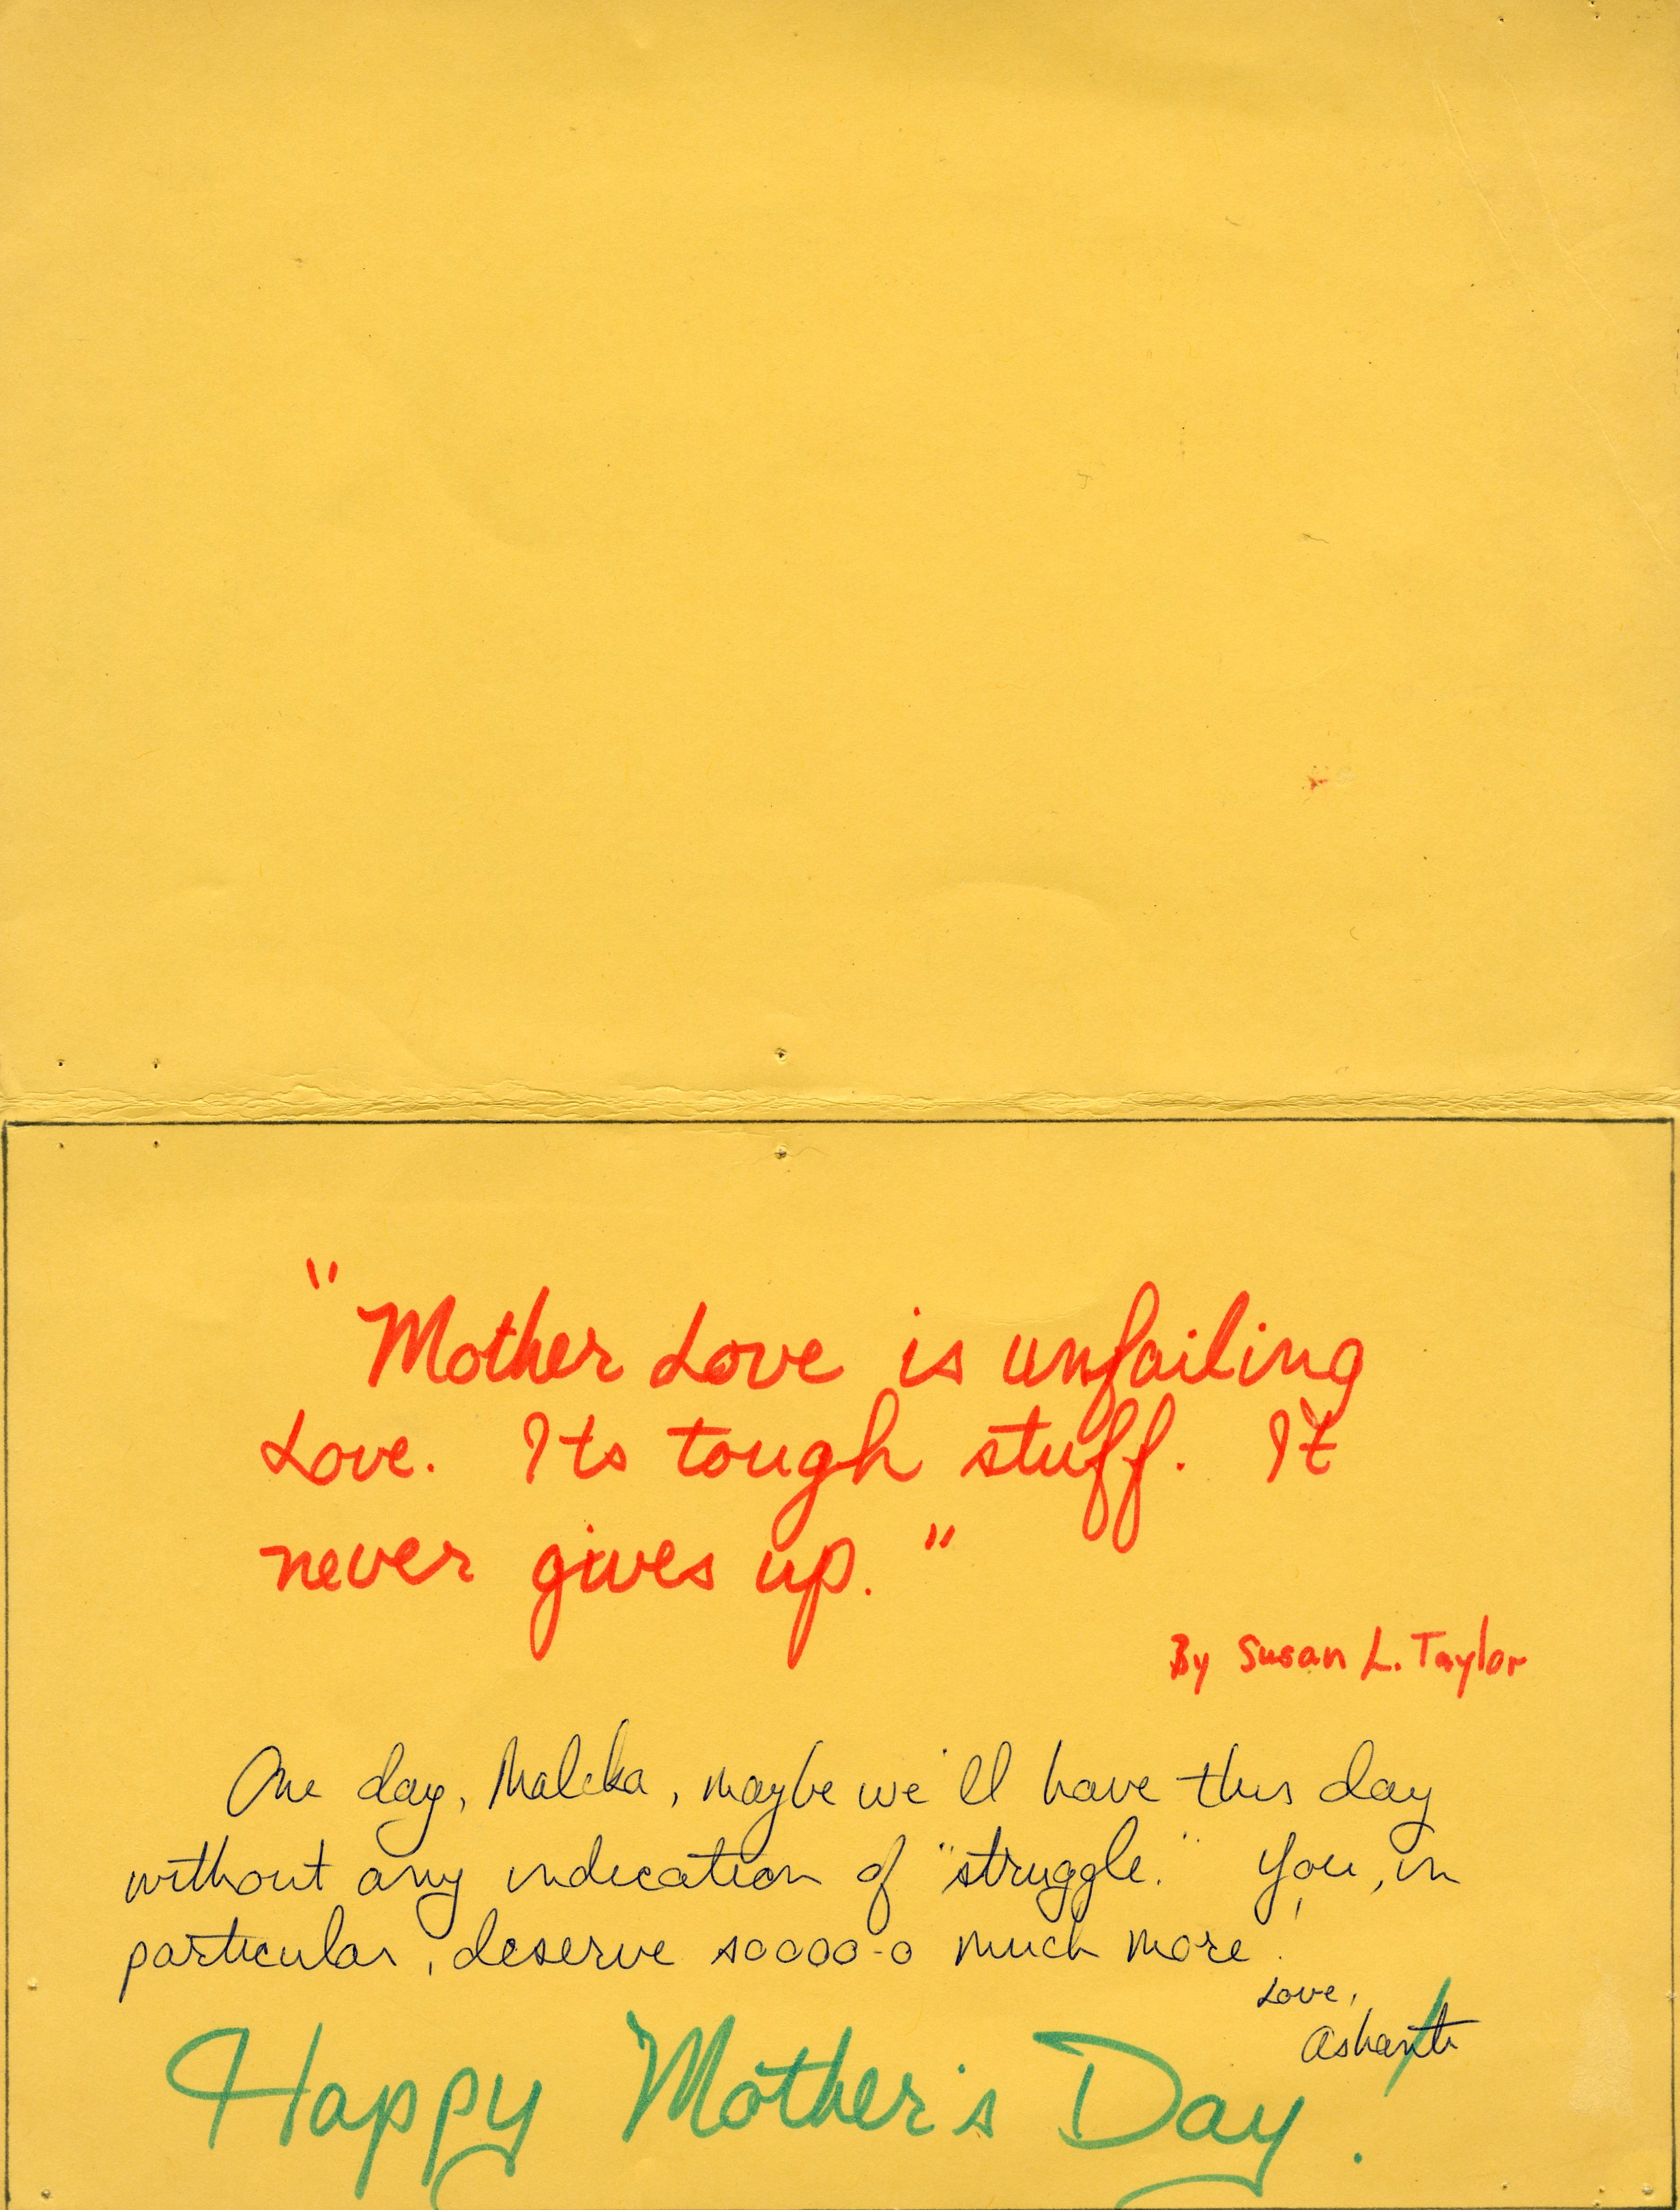 "Mother Love is unfailing
Love. Its tough stuff. It
never gives up."
By Susan L. Taylor
One day, Maleka, maybe we'll have this day
without any indication of "struggle." You, in
particular, deserve soooo-o much more!
Love,
Ashanti
Happy Mother's Day!